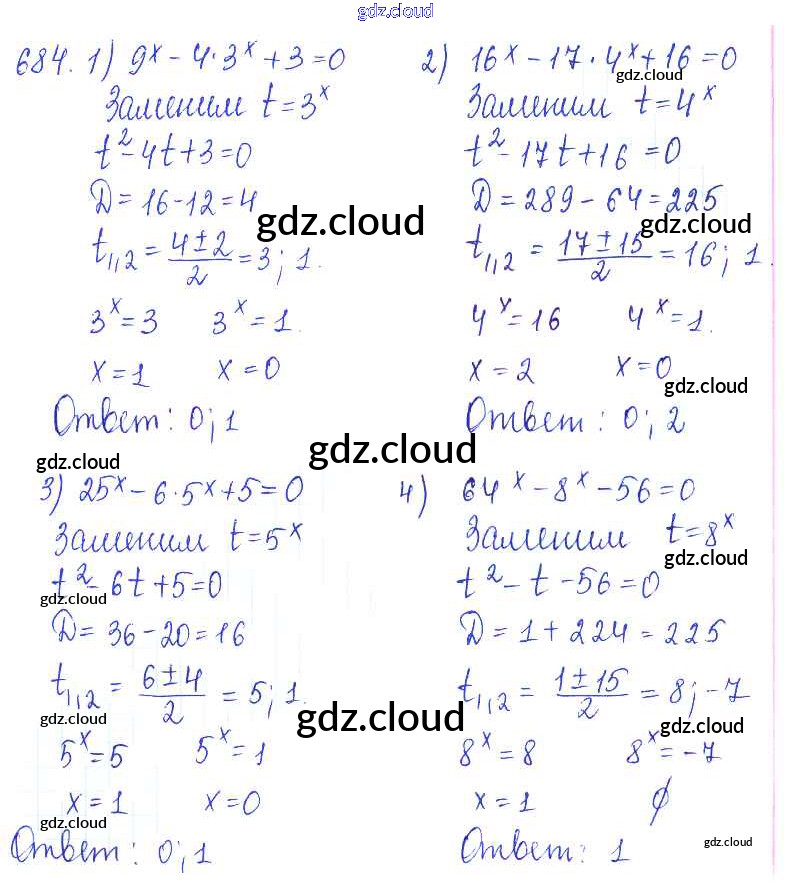 gdz.cloud
684. 1) 9ˣ - 4·3ˣ + 3 = 0
Заменим t = 3ˣ
t² - 4t + 3 = 0
D = 16 - 12 = 4
gdz.cloud
t₁,₂ = (4 ± 2)/2 = 3; 1.
3ˣ = 3 3ˣ = 1.
x = 1 x = 0
Ответ: 0; 1
2) 16ˣ - 17·4ˣ + 16 = 0
gdz.cloud
Заменим t = 4ˣ
t² - 17t + 16 = 0
D = 289 - 64 = 225
gdz.cloud
t₁,₂ = (17 ± 15)/2 = 16; 1.
4ˣ = 16 4ˣ = 1.
x = 2 x = 0
gdz.cloud
Ответ: 0; 2
gdz.cloud
gdz.cloud
3) 25ˣ - 6·5ˣ + 5 = 0
Заменим t = 5ˣ
t² - 6t + 5 = 0
gdz.cloud
D = 36 - 20 = 16
t₁,₂ = (6 ± 4)/2 = 5; 1.
gdz.cloud
gdz.cloud
5ˣ = 5 5ˣ = 1
x = 1 x = 0
gdz.cloud
Ответ: 0; 1
4) 64ˣ - 8ˣ - 56 = 0
Заменим t = 8ˣ
gdz.cloud
t² - t - 56 = 0
D = 1 + 224 = 225
t₁,₂ = (1 ± 15)/2 = 8; -7
gdz.cloud
8ˣ = 8 8ˣ = -7
x = 1 ∅
Ответ: 1
gdz.cloud